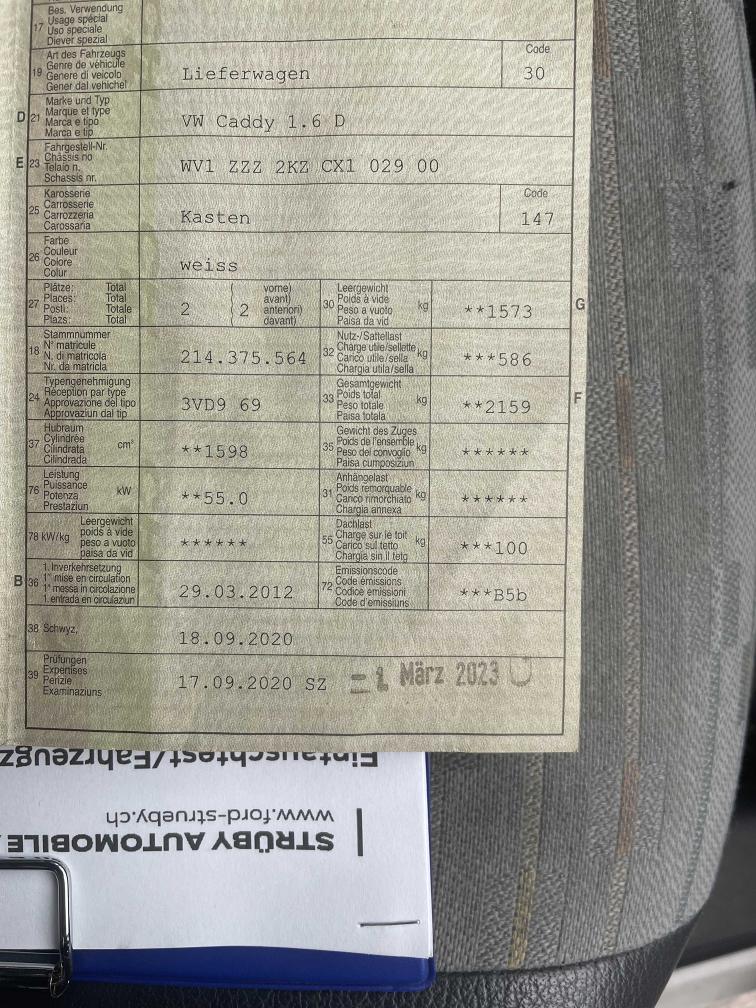 17 Bes. Verwendung
Usage spécial
Uso speciale
Diever spezial
19 Art des Fahrzeugs
Genre de véhicule
Genere di veicolo
Gener dal vehichel
Lieferwagen
Code
30
D 21 Marke und Typ
Marque et type
Marca e tipo
Marca e tip
VW Caddy 1.6 D
E 23 Fahrgestell-Nr.
Châssis no
Telaio n.
Schassis nr.
WV1 ZZZ 2KZ CX1 029 00
25 Karosserie
Carrosserie
Carrozzeria
Carossaria
Kasten
Code
147
26 Farbe
Couleur
Colore
Colur
weiss
27 Plätze: Total
Places: Total
Posti: Totale
Plazs: Total
2
2
vorne)
avant)
anteriori)
davant)
30 Leergewicht
Poids à vide
Peso a vuoto
Paisa da vid
kg
**1573
G
18 Stammnummer
N° matricule
N. di matricola
Nr. da matricla
214.375.564
32 Nutz-/Sattellast
Charge utile/sellette
Carico utile/sella
Chargia utila/sella
kg
***586
24 Typengenehmigung
Réception par type
Approvazione del tipo
Approvaziun dal tip
3VD9 69
33 Gesamtgewicht
Poids total
Peso totale
Paisa totala
kg
**2159
F
37 Hubraum
Cylindrée
Cilindrata
Cilindrada
cm³
**1598
35 Gewicht des Zuges
Poids de l'ensemble
Peso del convoglio
Paisa cumposiziun
kg
******
76 Leistung
Puissance
Potenza
Prestaziun
kW
**55.0
31 Anhängelast
Poids remorquable
Carico rimorchiato
Chargia annexa
kg
******
78 kW/kg
Leergewicht
poids à vide
peso a vuoto
paisa da vid
******
55 Dachlast
Charge sur le toit
Carico sul tetto
Chargia sin il tetg
kg
***100
B 36 1. Inverkehrsetzung
1re mise en circulation
1a messa in circolazione
1. entrada en circulaziun
29.03.2012
72 Emissionscode
Code émissions
Codice emissioni
Code d'emissiuns
***B5b
38 Schwyz,
18.09.2020
39 Prüfungen
Expertises
Perizie
Examinaziuns
17.09.2020 SZ
März 2023
Eintauschtest/Fahrzeugz
www.ford-strueby.ch
STRÜBY AUTOMOBILE